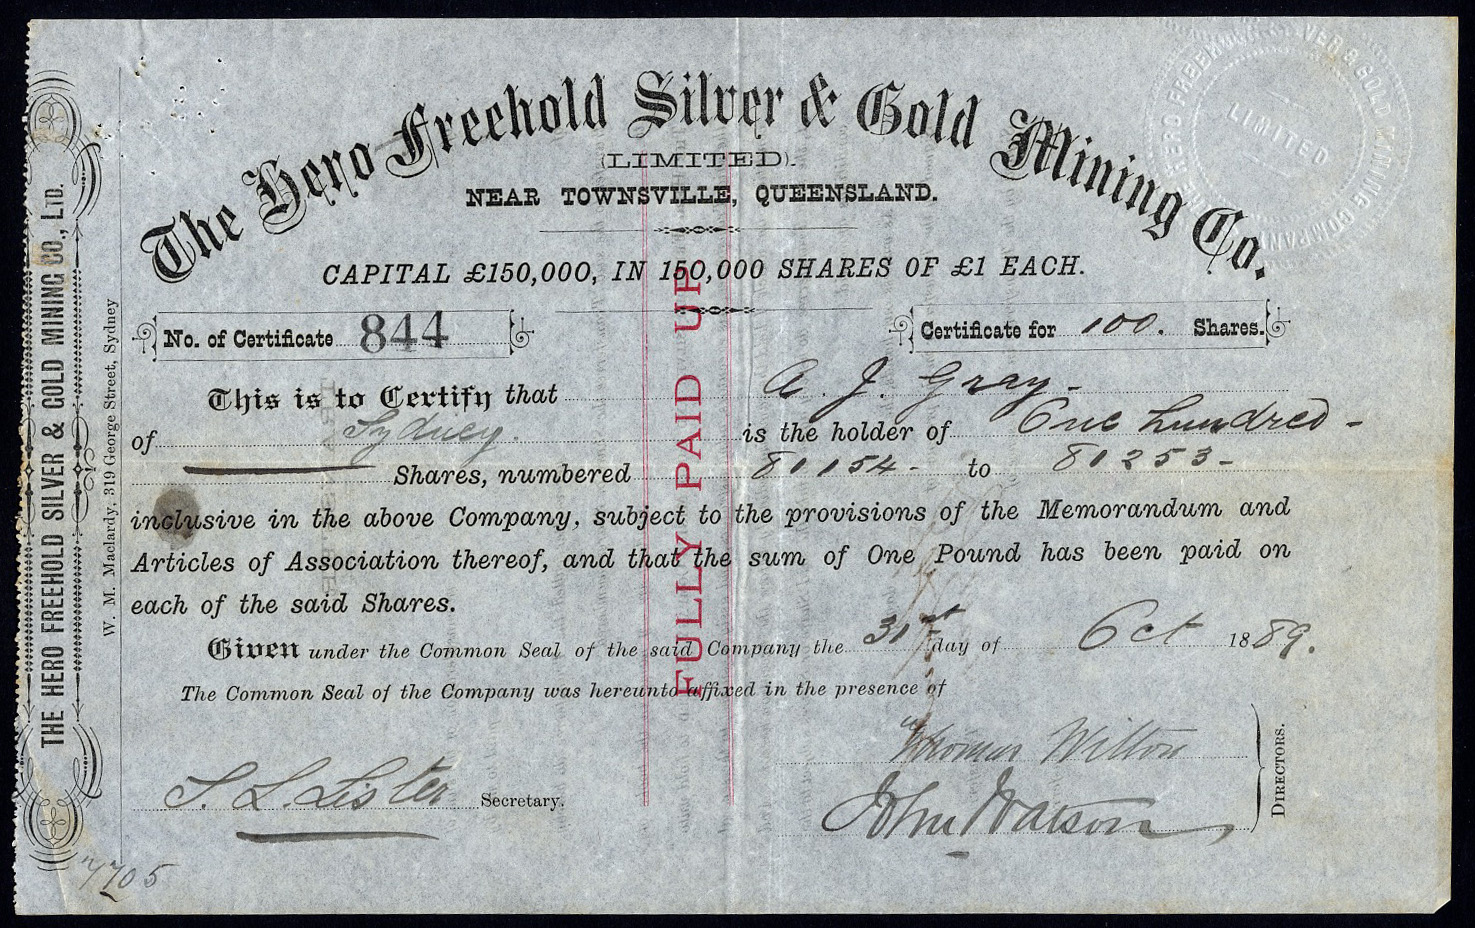 The Hero Freehold Silver & Gold Mining Co.
(LIMITED).
NEAR TOWNSVILLE, QUEENSLAND.
CAPITAL £150,000, IN 150,000 SHARES OF £1 EACH.
No. of Certificate 844
Certificate for 100. Shares.
This is to Certify that A. J. Gray-
of Sydney. is the holder of One hundred-
Shares, numbered 80154- to 80253-
inclusive in the above Company, subject to the provisions of the Memorandum and
Articles of Association thereof, and that the sum of One Pound has been paid on
each of the said Shares.
Given under the Common Seal of the said Company the 31st day of Oct 1889.
The Common Seal of the Company was hereunto affixed in the presence of
Thomas Wilton
S. L. Lister Secretary.
John Watson
DIRECTORS.
FULLY PAID UP
THE HERO FREEHOLD SILVER & GOLD MINING CO., LTD.
W. M. Maclardy, 319 George Street, Sydney
HERO FREEHOLD SILVER & GOLD MINING COMPANY
LIMITED